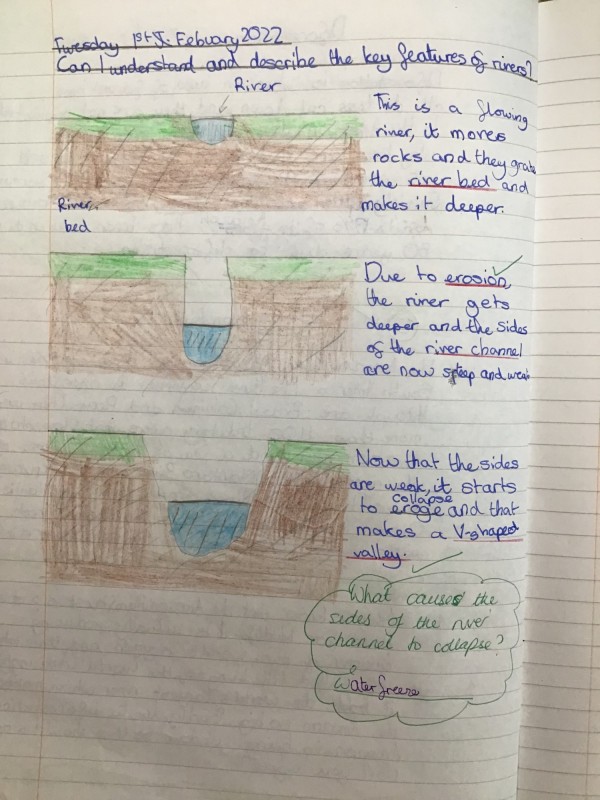 Tuesday 1st J. Febuary 2022
Can I understand and describe the key features of rivers?
River
This is a flowing
river, it moves
rocks and they grate
the river bed and
makes it deeper.
River
bed
Due to erosion,
the river gets
deeper and the sides
of the river channel
are now steep and weak
Now that the sides
are weak, it starts
collapse
to erode and that
makes a V-shaped
valley.
What causes the
sides of the river
channel to collapse?
Water freeze